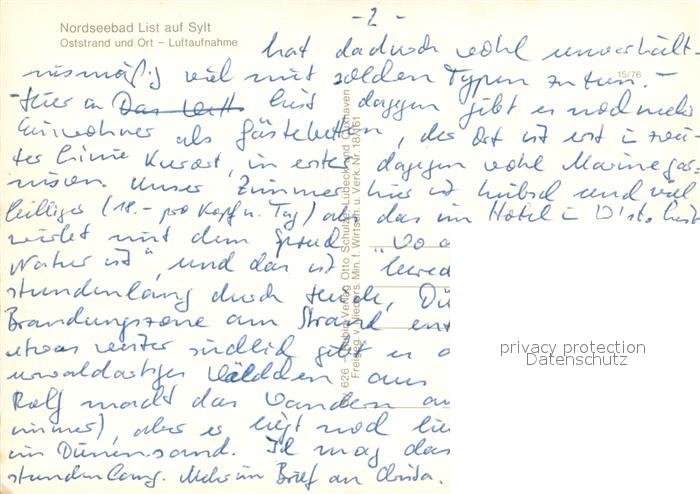 Nordseebad List auf Sylt
Oststrand und Ort – Luftaufnahme
-2-
hat dadurch wohl unverhält-
nismäßig viel mit solchen Typen zu tun. –
15/76
Hier in List dagegen gibt es noch mehr
Einwohner als Gästebetten, der Ort ist erst in zwei-
ter Linie Kurort, in erster dagegen wohl Marinegar-
nison. Unser Zimmer hier ist hübsch und viel
billiger (18.- pro Kopf u. Tag) als das im Hotel in List
wirbt mit dem Spruch "Wo
Natur ist", und das ist
stundenlang durch Heide, Dü
Brandungszone am Strand ent
etwas weiter südlich gibt es
urwaldartiges Wäldchen aus
Rolf macht das Wandern
immer), aber es liegt noch
im Dünensand. Ich mag das
stundenlang. Mehr im Brief an Christa.
626 – Verlag Otto Schulze, Lübeck und Cuxhaven
Freigeg. v. Nieders. Min. f. Wirtsch. u. Verk. Nr. 18/161
privacy protection
Datenschutz